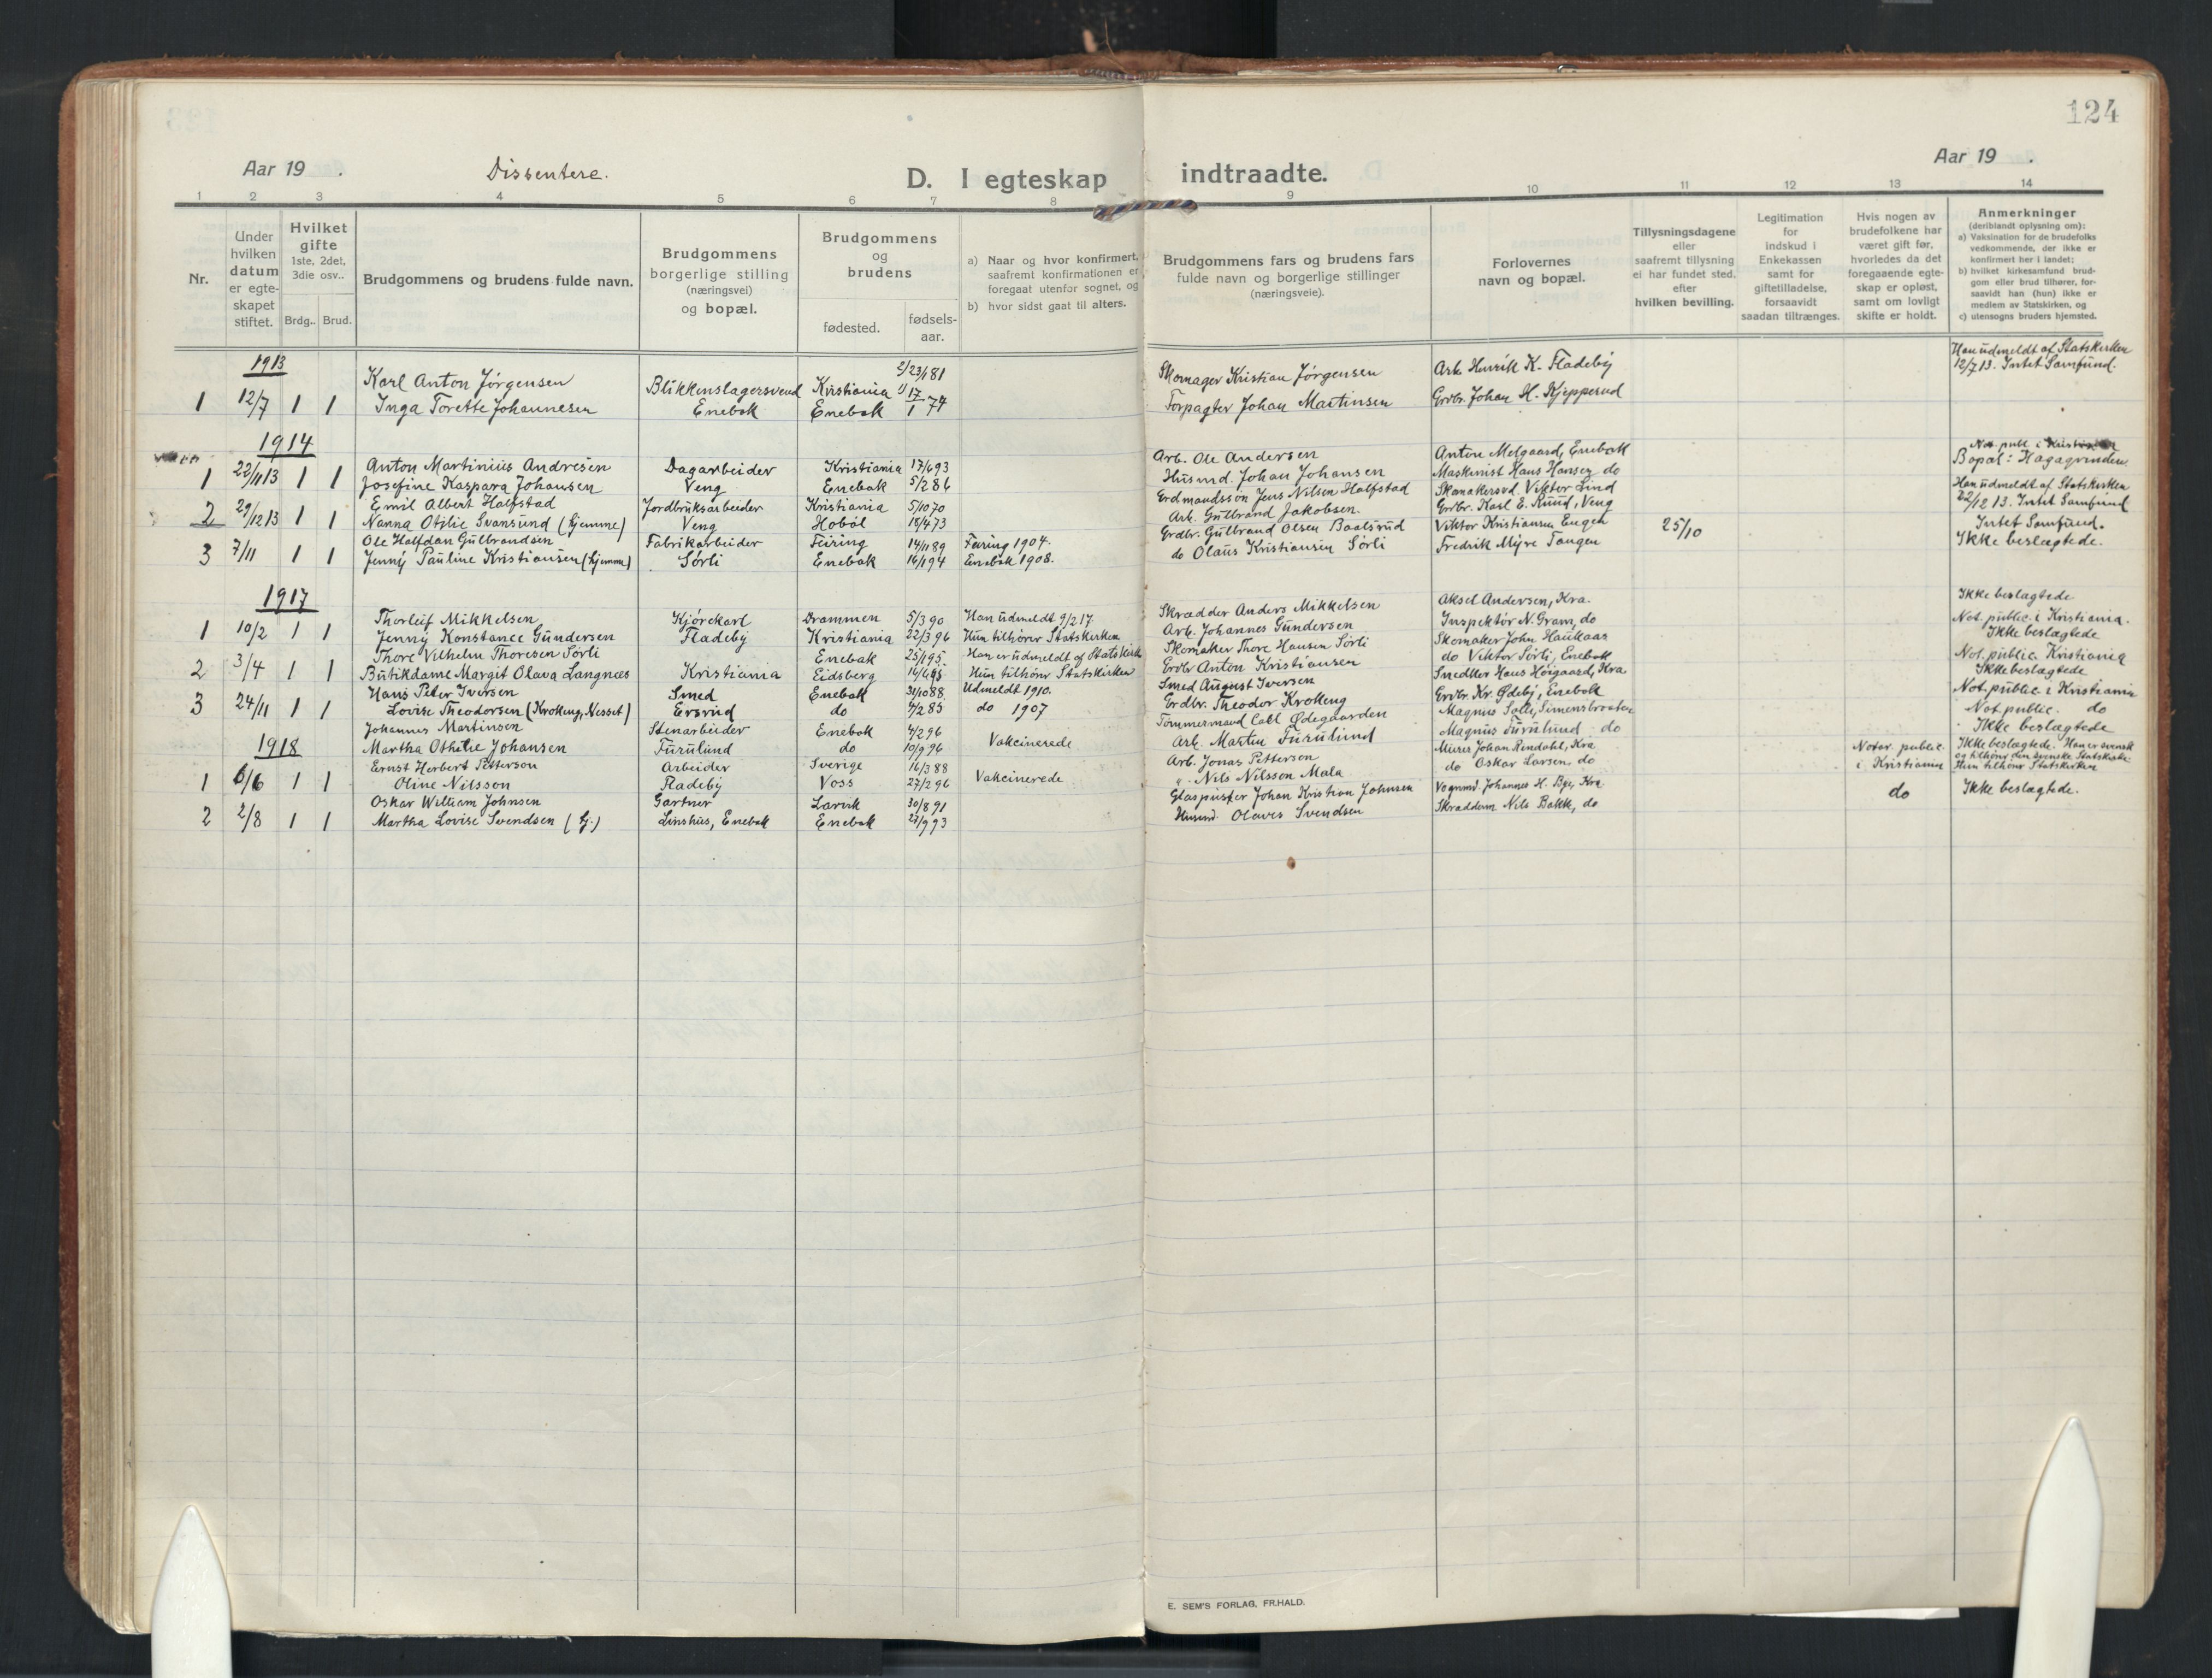 124
Aar 19 .
Dissentere.
D. I egteskap indtraadte.
Aar 19 .
1 2 3 4 5 6 7 8 9 10 11 12 13 14
Nr.
Under hvilken datum er egteskapet stiftet.
Hvilket gifte 1ste, 2det, 3die osv..
Brdg.. Brud.
Brudgommens og brudens fulde navn.
Brudgommens borgerlige stilling (næringsvei) og bopæl.
Brudgommens og brudens
fødested.
fødsels-aar.
a) Naar og hvor konfirmert, saafremt konfirmationen er foregaat utenfor sognet, og
b) hvor sidst gaat til alters.
Brudgommens fars og brudens fars fulde navn og borgerlige stillinger (næringsveie).
Forlovernes navn og bopæl.
Tillysningsdagene eller saafremt tillysning ei har fundet sted. efter hvilken bevilling.
Legitimation for indskud i Enkekassen samt for giftetilladelse, forsaavidt saadan tiltrænges.
Hvis nogen av brudefolkene har været gift før, hvorledes da det foregaaende egteskap er opløst, samt om lovligt skifte er holdt.
Anmerkninger (deriblandt oplysning om):
a) Vaksination for de brudefolks vedkommende, der ikke er konfirmert her i landet;
b) hvilket kirkesamfund brudgom eller brud tilhører, forsaavidt han (hun) ikke er medlem av Statskirken, og
c) utensogns bruders hjemsted.
1913
Karl Anton Jørgensen Blikkenslagersvend Kristiania 23/1 81 Skomager Kristian Jørgensen Arb. Henrik K. Fladeby Han udmeldt af Statskirken
1 12/7 1 1 Inga Torette Johannesen Enebak Enebak 17/1 74 Forpagter Johan Martinsen Grdbr. Johan H. Kjepperud 12/7 13. Intet Samfund.
1914
Anton Martinius Andresen Dagarbeider Kristiania 17/6 93 Arb. Ole Andersen Anton Melgaard, Enebak Not. publ. i
1 22/11 13 1 1 Josefine Kaspara Johansen Veng Enebak 5/2 86 Husmd. Johan Johansen Maskinist Hans Hansen do Bopæl: Hagagrinden
Emil Albert Halfstad Jordbruksarbeider Kristiania 5/10 70 Grdmandssøn Jens Nilsen Halfstad Skomakersvd. Viktor Lind Han udmeldt af Statskirken
2 29/12 13 1 1 Nanna Otilie Svansund (hjemme) Veng Hobøl 18/4 73 Arb. Gulbrand Jakobsen. Grdbr. Karl E. Ruud, Veng 22/12 13. Intet Samfund
Ole Halfdan Gulbrandsen Fabrikarbeider Feiring 14/11 89 Feiring 1904. Grdbr. Gulbrand Olsen Baalsrud Viktor Kristiansen Engen 25/10 Intet Samfund.
3 7/11 1 1 Jenny Pauline Kristiansen (hjemme) Sørli Enebak 16/1 94 Enebak 1908. do Olaus Kristiansen Sørli Fredrik Myre Tangen Ikke beslægtede.
1917
Thorleif Mikkelsen Kjørekarl Drammen 5/3 90 Han udmeldt 9/2 17 Skrædder Anders Mikkelsen Aksel Andersen, Kra. Ikke beslagtede
1 10/2 1 1 Jenny Konstance Gundersen Fladeby Kristiania 22/3 96 Hun tilhører Statskirken Arb. Johannes Gundersen Inspektør N. Gram, do Not. public. i Kristiania.
Thore Vilhelm Thoresen Sørli Enebak 25/1 95 Han er udmeldt af Statskirk Skomaker Thore Hansen Sørli Skomaker John Haukaas Ikke beslægtede
2 3/4 1 1 Butikdame Margit Olava Langnees Kristiania Eidsberg 16/6 95 Hun tilhører Statskirken Grdbr Anton Kristiansen do Viktor Sørli, Enebak Not. public. Kristiania
Hans Peter Iversen Smed Enebak 31/10 88 Udmeldt 1910. Smed August Iversen Snedker Hans Høigaard, Kra Ikke beslægtede
3 24/11 1 1 Lovise Theodorsen (Krokeng, Nesset) Ersrud do 4/2 85 do 1907 Grdbr. Theodor Krokeng Grdbr. Kr. Ødeby, Enebak Not. public. i Kristiania
Johannes Martinsen Stenarbeider Enebak 4/2 96 Vakcinerede Tømmermand Carl Ødegaarden Magnus Solli, Simensbraaten Not. public. do
1918
Martha Othilie Johansen Furulund do 10/9 96 Arb. Martin Furulund Magnus Furulund do Ikke beslagtede
Ernst Herbert Petterson Arbeider Sverige 16/3 88 Vakcinerede Arb. Jonas Pettersen Murer Johan Rendahl, Kra. Notar. public. Ikke beslægtede. Han er svensk og tilhører den svenske Statskirke.
1 6/6 1 1 Oline Nilsson Fladeby Voss 27/2 96 " Nils Nilsson Mala do Oskar Larsen, do i Kristiania Hun tilhører Statskirken
Oskar William Johnsen Gartner Larvik 30/8 91 Glaspuster Johan Kristian Johnsen Vognmd. Johannes H. Bye, Kra do Ikke beslægtede.
2 2/8 1 1 Martha Lovise Svendsen (hj.) Linshus, Enebak Enebak 27/9 93 Husmd. Olaves Svendsen Skræddem. Nils Bakk, do
E. SEM'S FORLAG, FR.HALD.